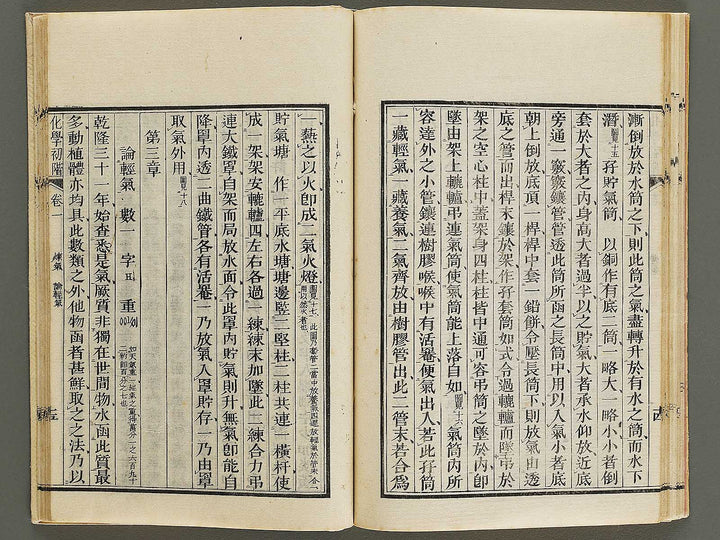 漸倒放於水筒之下則此筒之氣盡轉升於有水之筒而水下
潛圖見十五孖貯氣筒　以銅作有底二筒一略大一略小小者倒
套於大者之內身高大者過半以之貯氣大者承水仰放近底
旁通一竅竅鑲管管透此筒所函之長筒中用以入氣小者底
朝上倒放底頂一桿桿中套一鉛餅令壓長筒下則放氣由透
底之管而出桿末鑲於架作孖套筒如式令過轆轤而墜吊於
架之空心柱中蓋架身四柱柱皆中通可容吊筒之墜於內卽
墜由架上轆轤吊連氣筒使氣筒能上落自如圖見十六氣筒內所
容達外之小管鑲連樹膠喉喉中有活罨便氣出入若此孖筒
一藏輕氣一藏養氣二氣齊放由樹膠管出此二管末若合爲
一爇之以火卽成二氣火燈圖見十七此圖乃套管二當中放養氣四週放輕氣於管末合一用以然火者也
貯氣塘　作一平底水塘塘邊竪二堅柱二柱共連一橫杆使
成一架架安轆轤四左右各過一練練末加墜此二練合力弔
連大鐵罩自架而局放水面令此罩內貯氣則升無氣卽能自
降罩內透二曲鐵管各有活罨一乃放氣入罩貯存一乃由罩
取氣外用圖見十八
第三章
論輕氣　數一　字
乾隆三十一年始查悉是氣厥質非獨在世間物水函此質最
多動植體亦均具此數類之外他物函者甚鮮取之之法乃以
化學初階　卷一　論輕氣